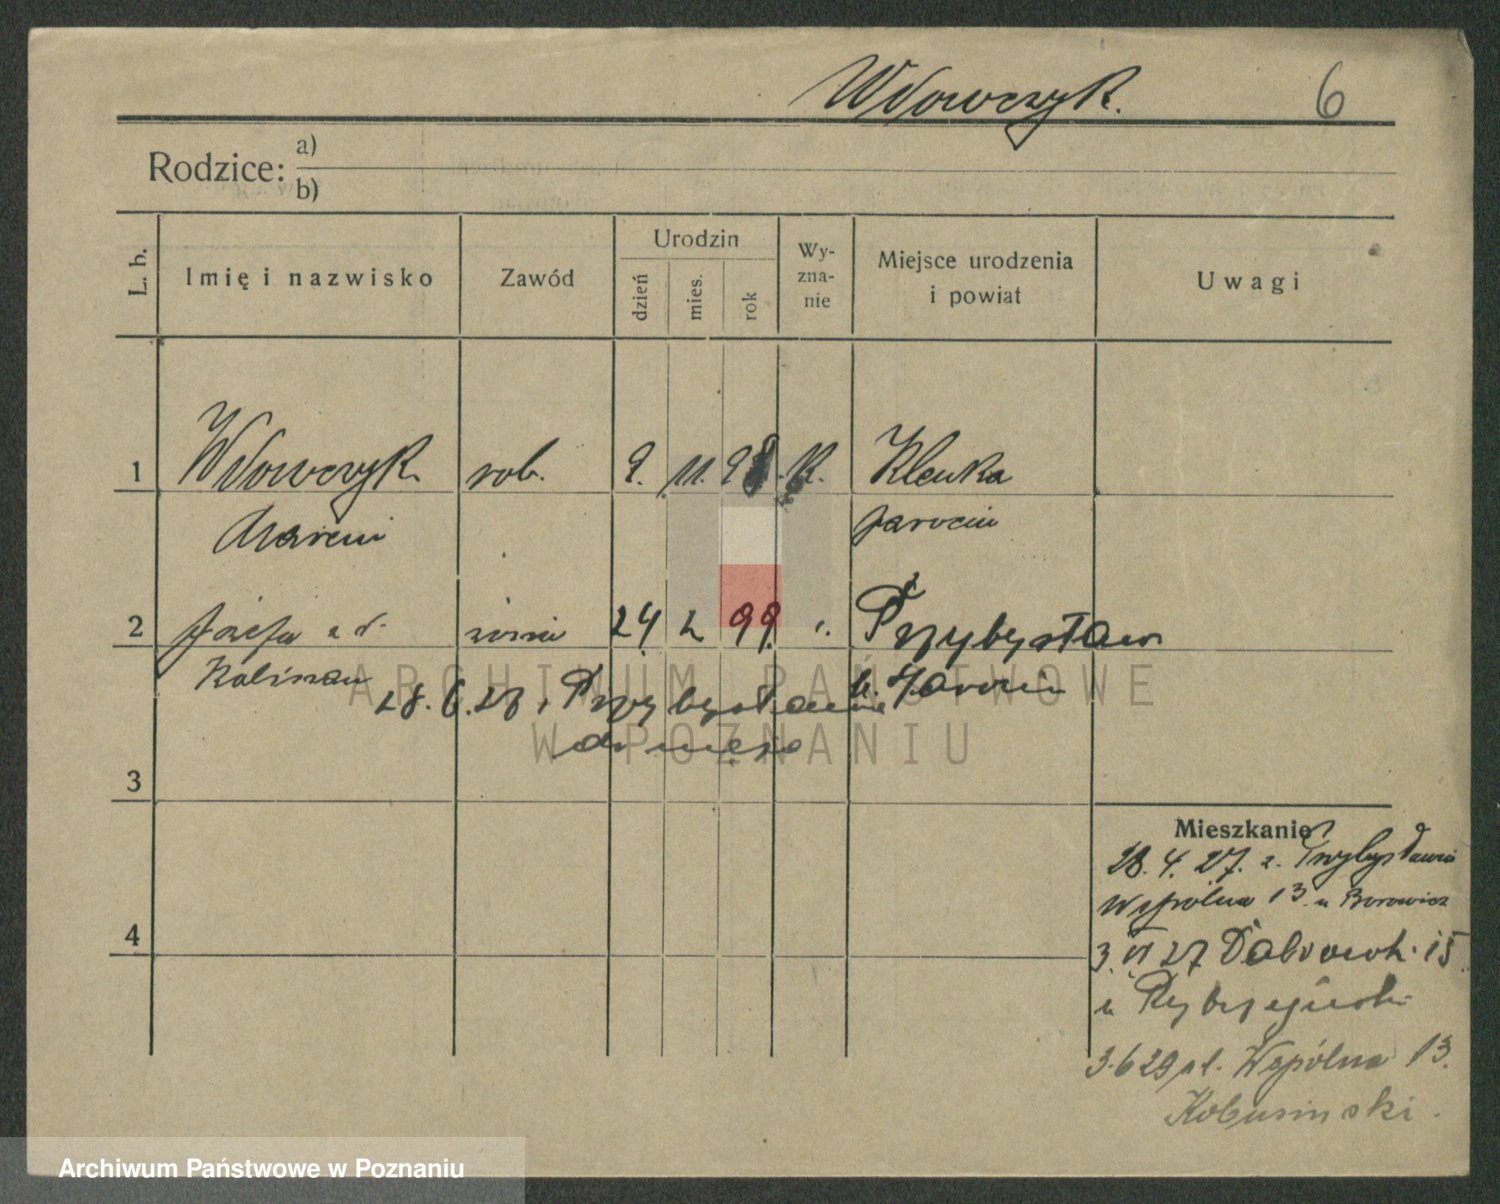 Wdowczyk. 6
Rodzice: a)
b)
L. b. Imię i nazwisko Zawód Urodzin dzień mies. rok Wy-zna-nie Miejsce urodzenia i powiat Uwagi
1 Wdowczyk rob. 9. 11. 98. K. Klenka
Marcin Jarocin
2 Józefa z d. żona 24 2 99. Przybysław
Kaliman p. Jarocin
28.6.27 z Przybysławia
do męża
3
Mieszkanie
28.4.27. z. Przybysławia
Wspólna 13 u Borowicz
4
3.VI 27 Dąbrowsk. 15
u
3.6 29 Wspólna 13.
Kobusinski.
ARCHIWUM PAŃSTWOWE
W POZNANIU
Archiwum Państwowe w Poznaniu